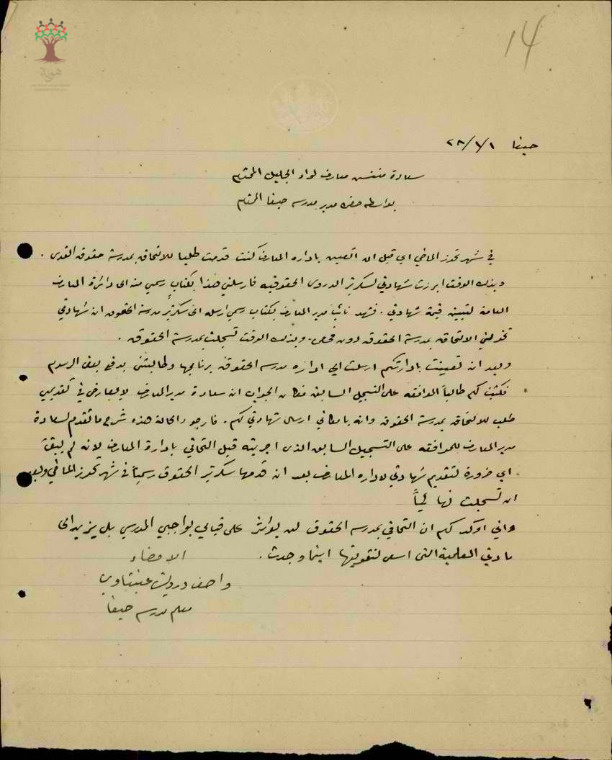 14
حيفا ٢٨/٦/١
سعادة مفتش معارف لواء الجليل المحترم
بواسطة حضرة مدير مدرسة حيفا المحترم
في شهر تموز الماضي اي قبل ان اتعين بادارة المعارف كنت قدمت طلبا للالتحاق بمدرسة حقوق القدس
وبذلك الوقت ابرزت شهادتي لسكرتير الدروس الحقوقية فارسلني هذا بكتاب رسمي منه الى دائرة المعارف
العامة لتبيين قيمة شهادتي . فشهد نائب مدير المعارف بكتاب رسمي ارسله الى سكرتير مدرسة الحقوق ان شهادتي
تخولني الالتحاق بمدرسة الحقوق دون فحص . وبذلك الوقت تسجلت بمدرسة الحقوق .
وبعد ان تعينت بادارتكم ارسلت الي ادارة مدرسة الحقوق برنامجها وطالبتني بدفع بعض الرسوم
فكتبت لكم طالباً الموافقة على التسجيل السابق فكان الجواب ان سعادة مدير المعارف لا يعارض في تقديمي
طلب للالتحاق بمدرسة الحقوق وانه بامكاني ارسال شهادتي لكم . فارجو والحالة هذه شرح ما تقدم لسعادة
مدير المعارف للموافقة على التسجيل السابق الذي اجريته قبل التحاقي بادارة المعارف لانه لم يبق
اي ضرورة لتقديم شهادتي لادارة المعارف بعد ان قدمها سكرتير الحقوق رسمياً في شهر تموز الماضي وبعد
ان تسجلت نهائياً
واني اؤكد لكم ان التحاقي بمدرسة الحقوق لن يؤثر على قيامي بواجبي المدرسي بل يزيد الى
مادتي العلمية التي اسعى لتقويتها اينما وجدت .
الامضاء
واصف درويش عنبتاوي
معلم مدرسة حيفا